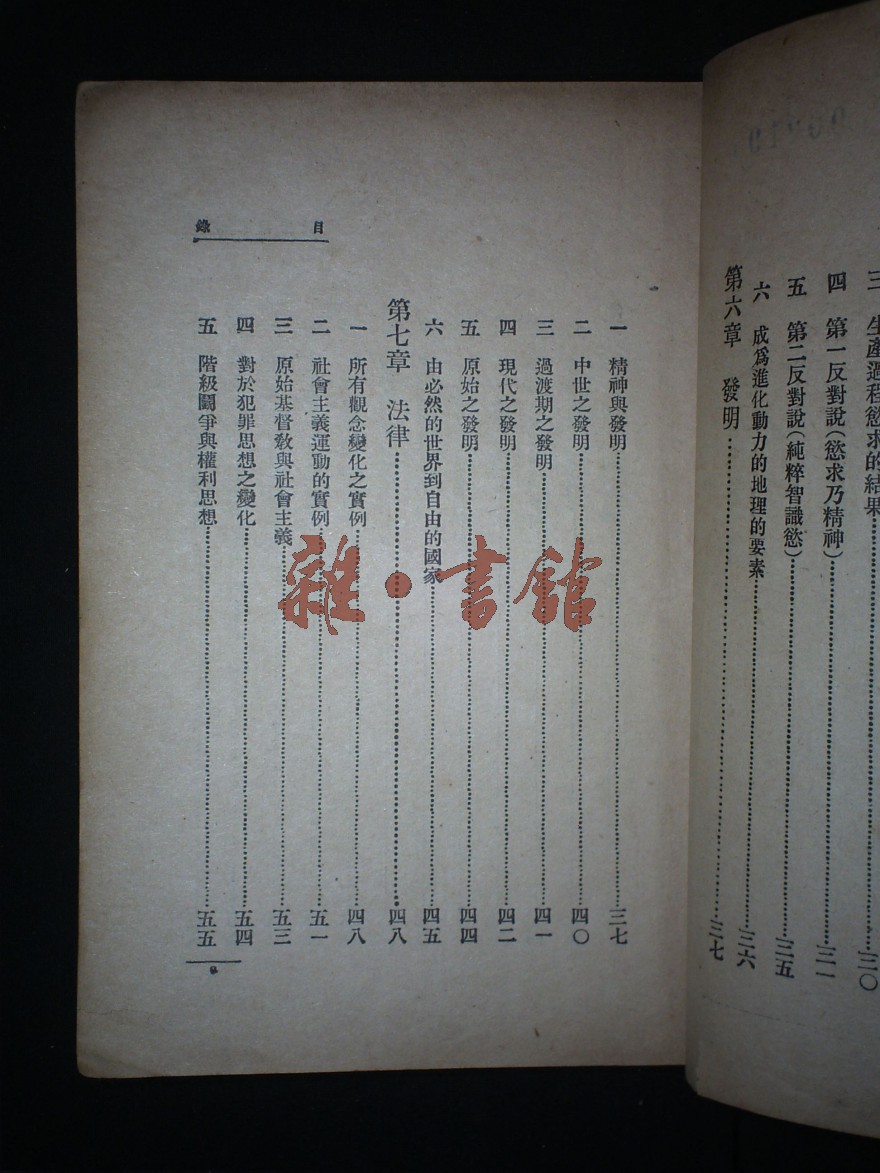 三　生產過程慾求的結果……三〇
四　第一反對說（慾求乃精神）……三一
五　第二反對說（純粹智識慾）……三五
六　成爲進化動力的地理的要素……三六
第六章　發明……三七
目　錄
一　精神與發明……三七
二　中世之發明……四〇
三　過渡期之發明……四一
四　現代之發明……四二
五　原始之發明……四四
六　由必然的世界到自由的國家……四五
第七章　法律……四八
一　所有觀念變化之實例……四八
二　社會主義運動的實例……五一
三　原始基督教與社會主義……五三
四　對於犯罪思想之變化……五四
五　階級鬭爭與權利思想……五五
雜·書館